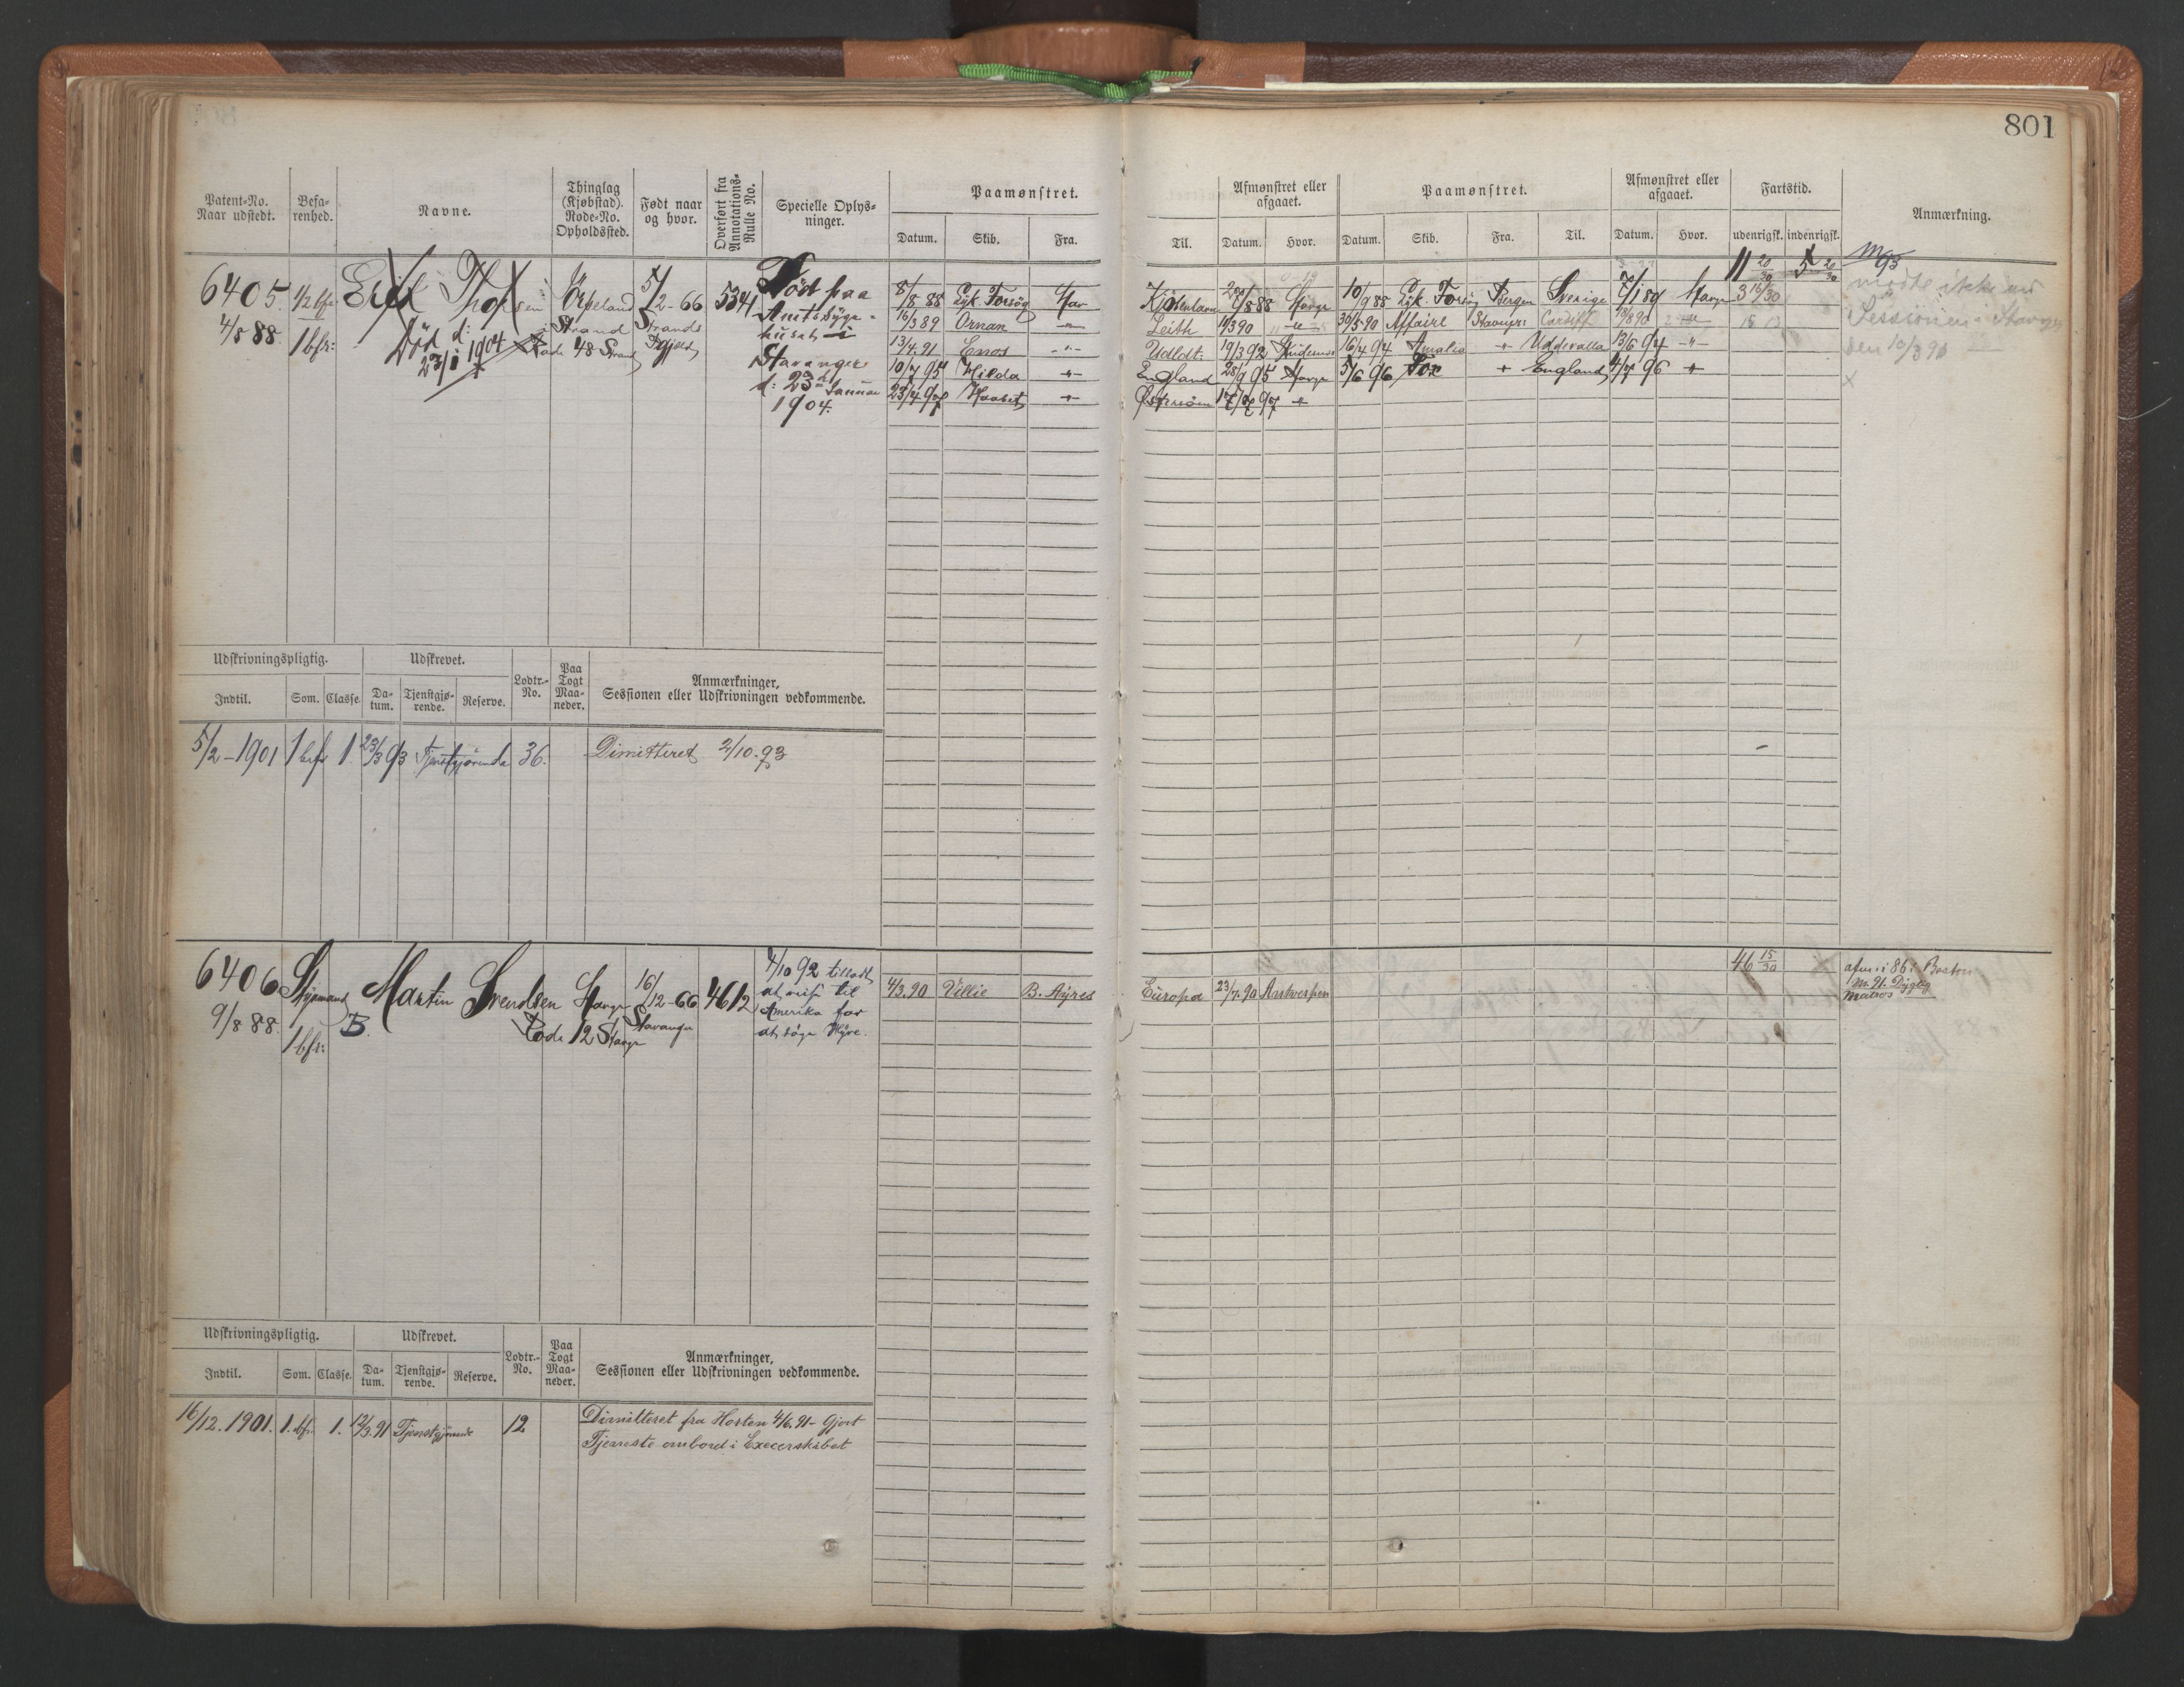 801
Patent-No. Naar udstedt.
Befarenhed.
Navne.
Thinglag (Kjøbstad). Rode-No. Opholdssted.
Født naar og hvor.
Overført fra Annotations-Rulle No.
Specielle Oplysninger.
Paamønstret.
Datum. Skib. Fra. Til.
Afmønstret eller afgaaet.
Datum. Hvor.
Paamønstret.
Datum. Skib. Fra. Til.
Afmønstret eller afgaaet.
Datum. Hvor.
Fartstid.
udenrigsk. indenrigsk.
Anmærkning.
6405.
4/8 88.
1/2 bfr
1 bfr:
Død d:
23/1 1904
Strand
48 Strand
5/2-66
Strands
Pgjeld
5341
Død paa
Amtssyge-
huset i
Stavanger
d: 23de Januar
1904.
8/8 88 Forsøg Stav
16/3 89 Ornan -"-
13/4.91 Enos -"-
10/4 95 Hilda -"-
23/4 97 Haabet -"-
Kjøbenhavn /8 88 Stavgr 10/9 88 Forsøg Bergen Sverige 7/1 89 Stavgr 3 16/30
Leith /3 90 -"- 30/5 90 Affaire Stavngr: Cardiff 13/8 90 -"-
Udlldt. 19/3 92 16/4 94 Amalia -"- Uddevalla 13/6 94 -"-
England 28/9 95 Stavgr 5/6 96 Fox -"- England 4/7 96 -"-
97 -"-
11 20/30 5 20/30
M 93
mødte ikke ved
Sessionen i Stavgr
den 10/3 90
Udskrivningspligtig.
Indtil. Som. Classe.
Udskrevet.
Datum. Tjenstgjørende. Reserve.
Lodtr.-No.
Paa Togt Maaneder.
Anmærkninger, Sessionen eller Udskrivningen vedkommende.
5/2-1901 1 bfr 1. 23/3 93 Tjenstgjørende 36. Dimitteret 2/10.93
6406
9/8 88.
Styrmand
1 bfr:
Martin Svendsen
B.
Stavgr
Rode 12 Stavgr
16/12-66
Stavanger
4612
4/10 92 tilladt
at reise til
Amerika for
at søge Hyre.
4/3.90 Villie B. Ayres Europa 23/7.90 Antwerpen
46 15/30
afm. i 86 i Boston
M. 91. Dygtig
Matros
Udskrivningspligtig.
Indtil. Som. Classe.
Udskrevet.
Datum. Tjenstgjørende. Reserve.
Lodtr.-No.
Paa Togt Maaneder.
Anmærkninger, Sessionen eller Udskrivningen vedkommende.
16/12.1901. 1. bfr. 1. 12/3.91 Tjenstgjørende 12 Dimitteret fra Horten 4/6.91- Gjort
Tjeneste ombord i Exercerskibet